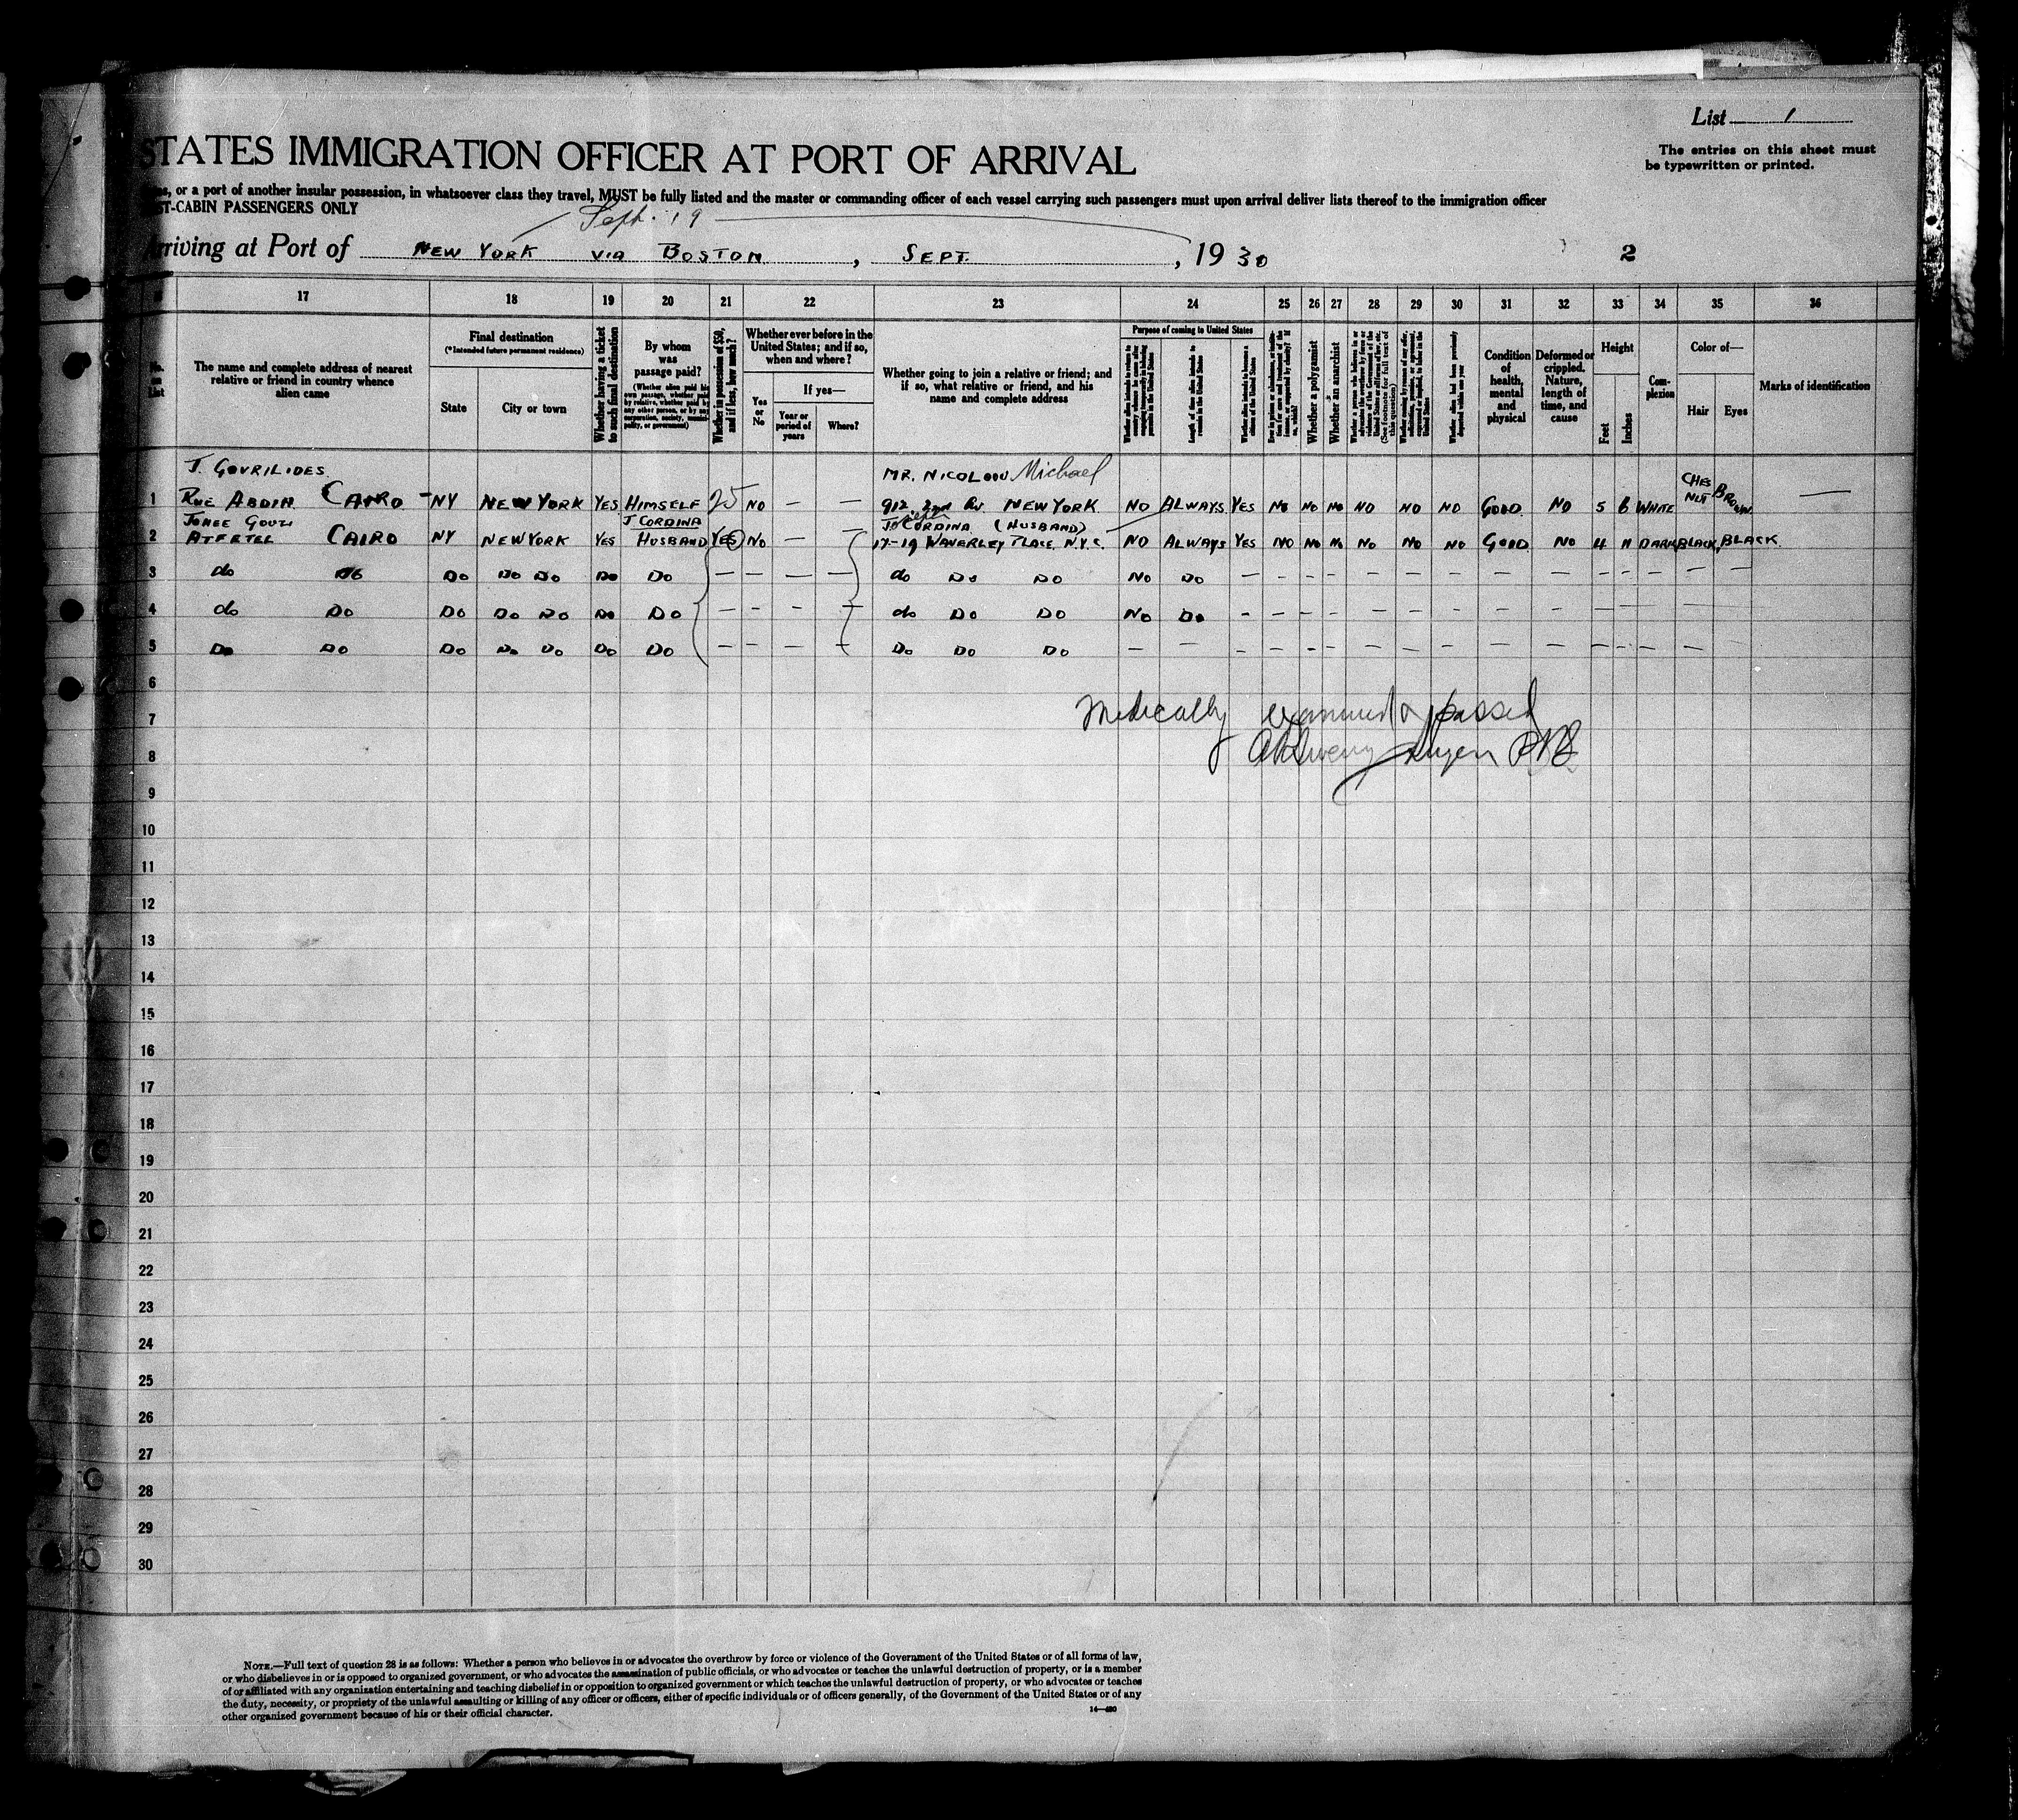 List 1
The entries on this sheet must
be typewritten or printed.
STATES IMMIGRATION OFFICER AT PORT OF ARRIVAL
or a port of another insular possession, in whatsoever class they travel, MUST be fully listed and the master or commanding officer of each vessel carrying such passengers must upon arrival deliver lists thereof to the immigration officer
ST-CABIN PASSENGERS ONLY
Sept. 19
Arriving at Port of NEW YORK VIA BOSTON, SEPT. , 1930
2
17 18 19 20 21 22 23 24 25 26 27 28 29 30 31 32 33 34 35 36
No. on List
The name and complete address of nearest
relative or friend in country whence
alien came
Final destination
(*Intended future permanent residence)
State
City or town
Whether having a ticket
to such final destination
By whom
was
passage paid?
(Whether alien paid his
own passage, whether paid
by relative, whether paid by
any other person, or by any
corporation, society, munici-
pality, or government)
Whether in possession of $50,
and if less, how much?
Whether ever before in the
United States; and if so,
when and where?
Yes
or
No
If yes—
Year or
period of
years
Where?
Whether going to join a relative or friend; and
if so, what relative or friend, and his
name and complete address
Purpose of coming to United States
Length of time alien intends to
remain in the United States
Whether alien intends to become a
citizen of the United States
Whether a polygamist
Whether an anarchist
(See footnote for full text of
this question)
Whether alien had been previously
deported within one year
Condition
of
health,
mental
and
physical
Deformed or
crippled.
Nature,
length of
time, and
cause
Height
Feet
Inches
Com-
plexion
Color of—
Hair
Eyes
Marks of identification
J. GOVRILIDES MR. NICOLOOU Michael
1 RUE ABDIN CAIRO NY NEW YORK YES HIMSELF 25 NO — — 912. 2nd Av NEW YORK NO ALWAYS YES NO NO NO NO NO NO GOOD NO 5 6 WHITE CHESNUT BROWN —
J CORDINA CORDINA (HUSBAND)
2 CAIRO NY NEW YORK YES HUSBAND YES NO — — 17-19 WAVERLEY PLACE. N.Y.C. NO ALWAYS YES NO NO NO NO NO NO GOOD NO 4 11 DARK BLACK, BLACK
3 do Do Do Do Do Do Do — — — — do Do Do NO Do — — — — — — — — — — — — — —
4 do Do Do Do Do Do Do — — — — do Do Do NO Do — — — — — — — — — — — —
5 Do Do Do Do Do Do Do — — — — Do Do Do — — — — — — — — — — — — — — —
6
Medically examined & passed
7
8
9
10
11
12
13
14
15
16
17
18
19
20
21
22
23
24
25
26
27
28
29
30
NOTE.—Full text of question 28 is as follows: Whether a person who believes in or advocates the overthrow by force or violence of the Government of the United States or of all forms of law,
or who disbelieves in or is opposed to organized government, or who advocates the assassination of public officials, or who advocates or teaches the unlawful destruction of property, or is a member
of or affiliated with any organization entertaining and teaching disbelief in or opposition to organized government or which teaches the unlawful destruction of property, or who advocates or teaches
the duty, necessity, or propriety of the unlawful assaulting or killing of any officer or officers, either of specific individuals or of officers generally, of the Government of the United States or of any
other organized government because of his or their official character.
14—480